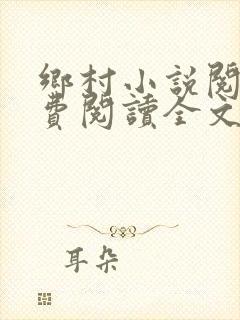 鄉村小說閱
費閱讀全文
耳朵